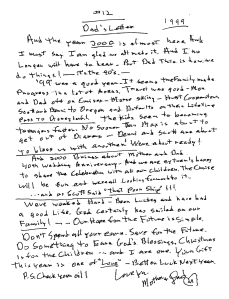 #12
Dad's Letter 1999
And the year 2000 is almost here And
I must say I am glad we made it. And I no
Longer will have to hear - But Dad This is how we
do things! — In the 90's.
'99 was a good year - I seems the family made
Progress in a lot of Areas, Travel was good - Mom
and Dad off on Cruises - Motor skiing -
Scott and Dani to Oregon and
Pass to Disneyland. The Kids seem to becoming
Teenagers faster. No sooner Than Max is about to
get out of Diapers - Dani and Scott are about
To bless us with another! Were about ready!
And 2000 Brings about Mother and Dad
40th Wedding Anniversary - And we are extremely happy
to share the Celebration with all our Children. The Cruise
will be fun and were all Looking forward to it.
— and or Scott says "that Poor Ship" !!!
Weve worked Hard - Been Lucky and have had
a good Life, God Certainly has smiled on our
Family — - Our Hope for the Future is simple,
Don't spend all your earn. Save for the Future.
Do Something to Earn God's Blessings, Christmas
is for the Children — and I am one. Your Gift
This year is one of "Love" - Better Luck Next year.
P.S. Check your oil! Love Ya
Mother &